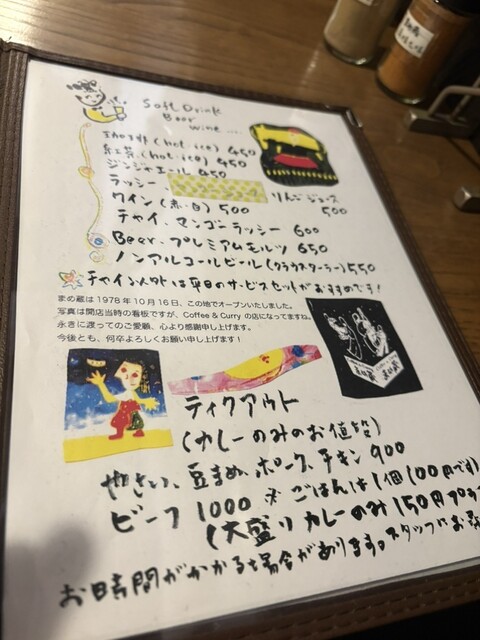 Soft Drink
Beer
wine ....
紅茶 (hot・ice) 450
ジンジャエール 450
ラッシー、
りんごジュース
500
ワイン (赤・白) 500
チャイ、マンゴーラッシー 600
Beer、プレミアムモルツ 650
ノンアルコールビール (クラウスターラー) 550
チャイ以外は平日のサービスセットがおすすめです!
まめ蔵は1978年10月16日、この地でオープンいたしました。
写真は開店当時の看板ですが、Coffee & Curry の店になってますね。
永きに渡ってのご愛顧、心より感謝申し上げます。
今後とも、何卒よろしくお願い申し上げます!
テイクアウト
(カレーのみのお値段)
やさい、豆まめ、ポーク、チキン 900
ビーフ 1000 ※ ごはんは1個100円です
(大盛り カレーのみ150円プラ
お時間がかかる場合があります。スタッフにお